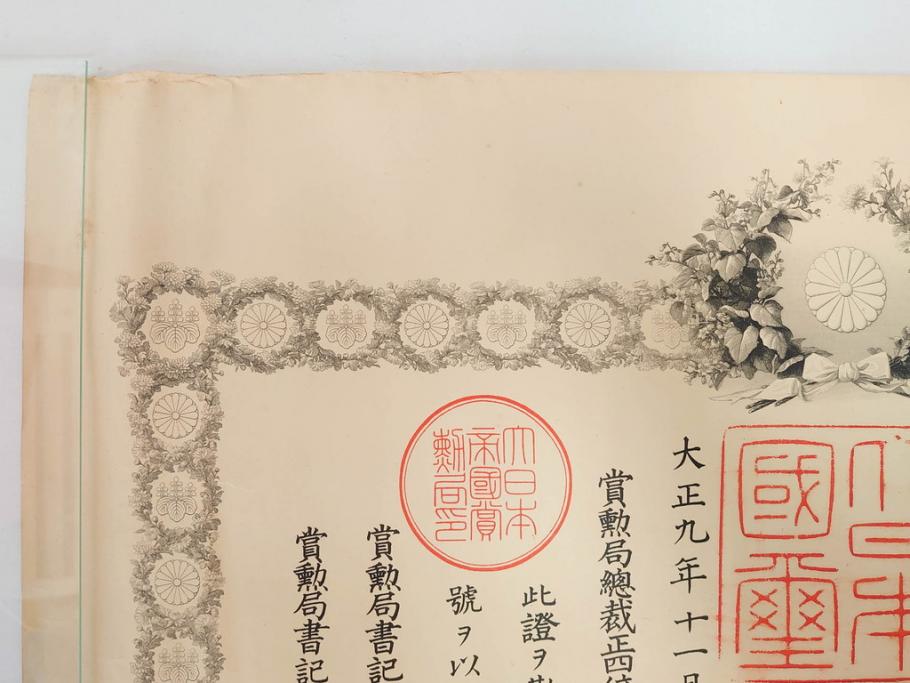 大日本
國璽
大正九年十一月
賞勳局總裁正四
大日本
帝國賞
勳局印
此證ヲ
號ヲ以
賞勳局書記
賞勳局書記